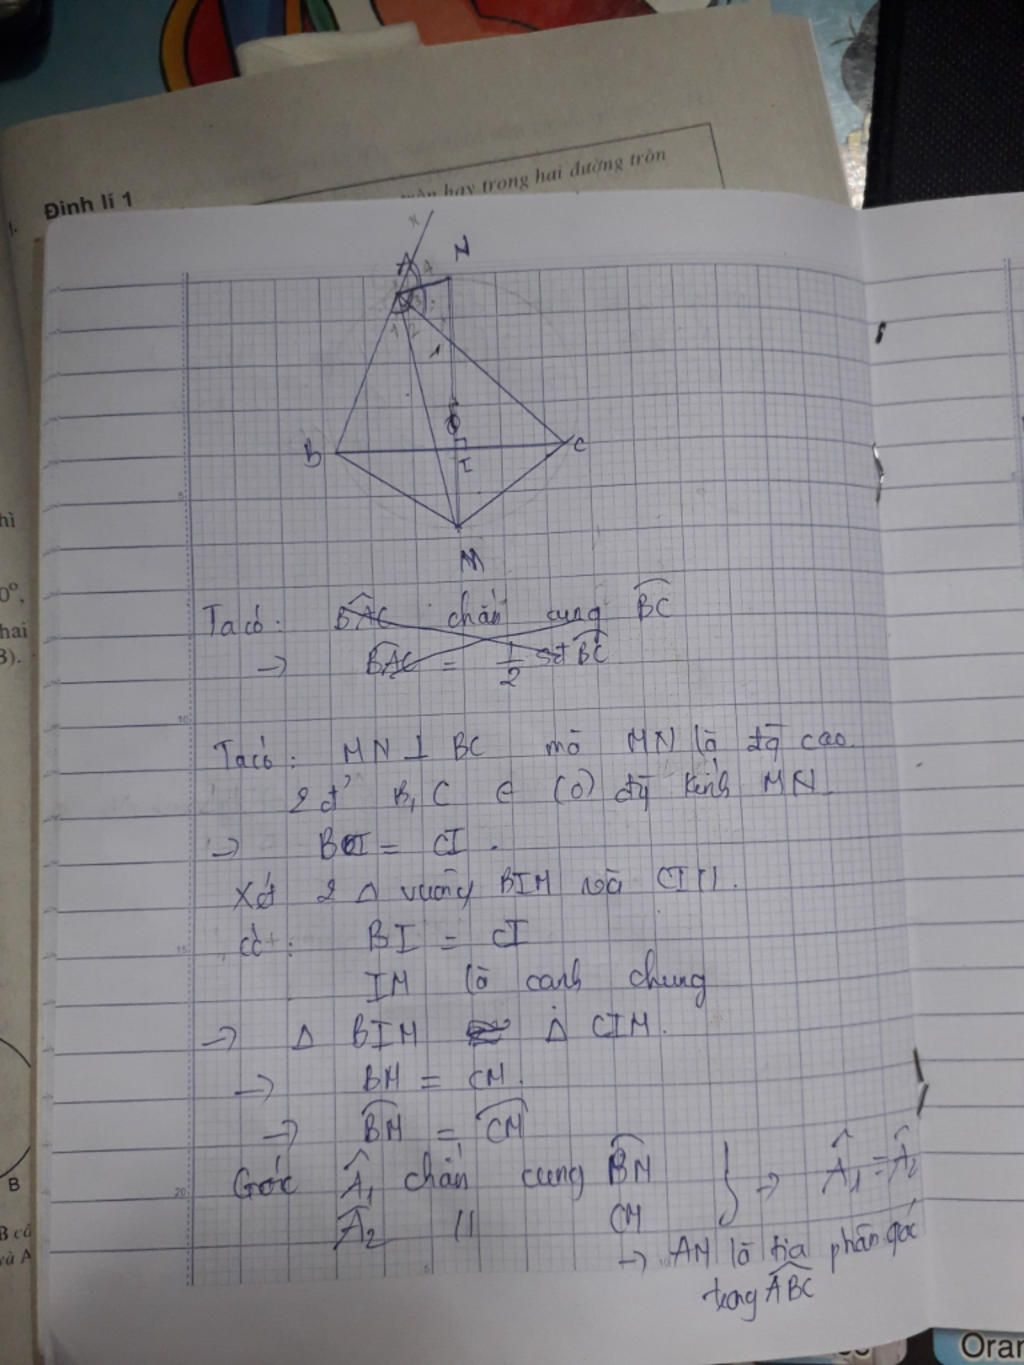 Định lí 1
hay trong hai đường tròn
x
A
N
4
1 2
1
B
I
C
M
hì
0°,
hai
B).
Ta có: BAC chắn cung BC
→ BAC = 1/2 sđ BC
Ta có: MN ⊥ BC mà MN là đg cao.
2 đ' B, C ∈ (O) đg kính MN
→ BI = CI.
Xét 2 Δ vuông BIM và CIM.
có: BI = CI
IM là cạnh chung
→ Δ BIM Δ CIM.
→ BM = CM.
→ BM = CM
Góc Â1 chắn cung BM } → Â1 = Â2
Â2 // CM
→ AM là tia phân góc
trong ABC
B
B có
và A
5
10
15
20
Oran